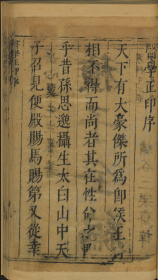 正印序
天下有大豪傑所為即侯王
相不得而尚者其在性分之
乎昔孫思邈攝生太白山中天
子召見便殿賜馬賜第又從幸